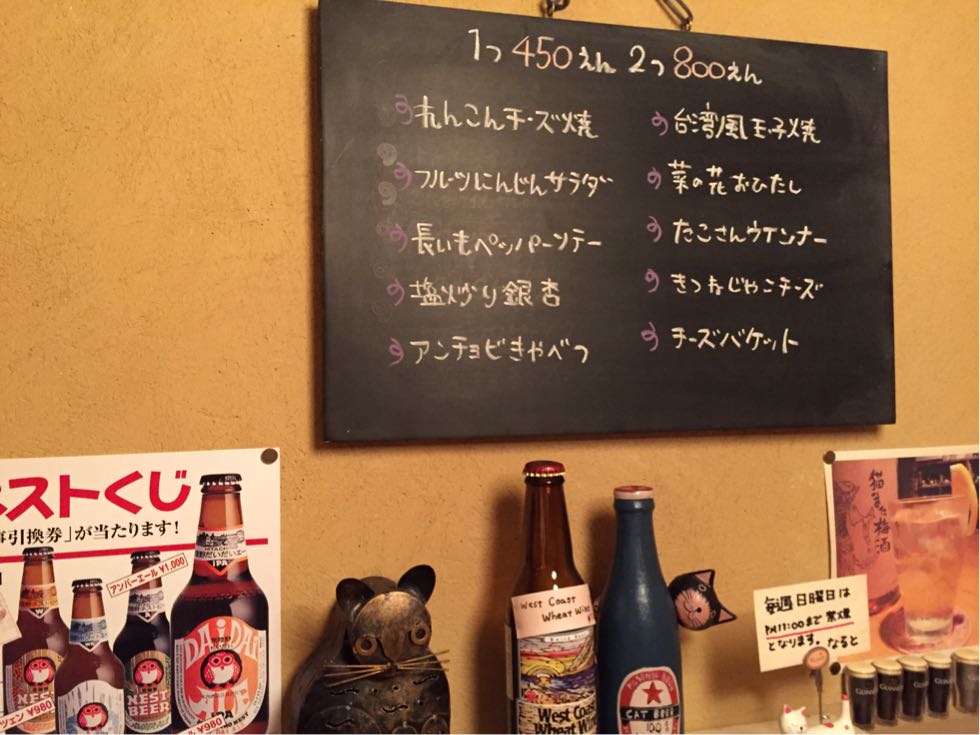 1つ 450えん 2つ 800えん
れんこんチーズ焼
フルーツにんじんサラダ
長いもペッパーソテー
塩炒り銀杏
アンチョビきゃべつ
台湾風玉子焼
菜の花おひたし
たこさんウインナー
きつねじゃこチーズ
チーズバケット
ストくじ
引換券」が当たります!
アンバーエール ¥1,000
HITACHINO
IPA
DAiDAi
IPA
NEST
BEER
NEST
¥980
¥980
West Coast
Wheat Wine
West Coast
Wheat Wine
CAT BEER
100%
猫また梅酒
毎週日曜日は
PM11:00まで禁煙
となります。なると
GUINNESS